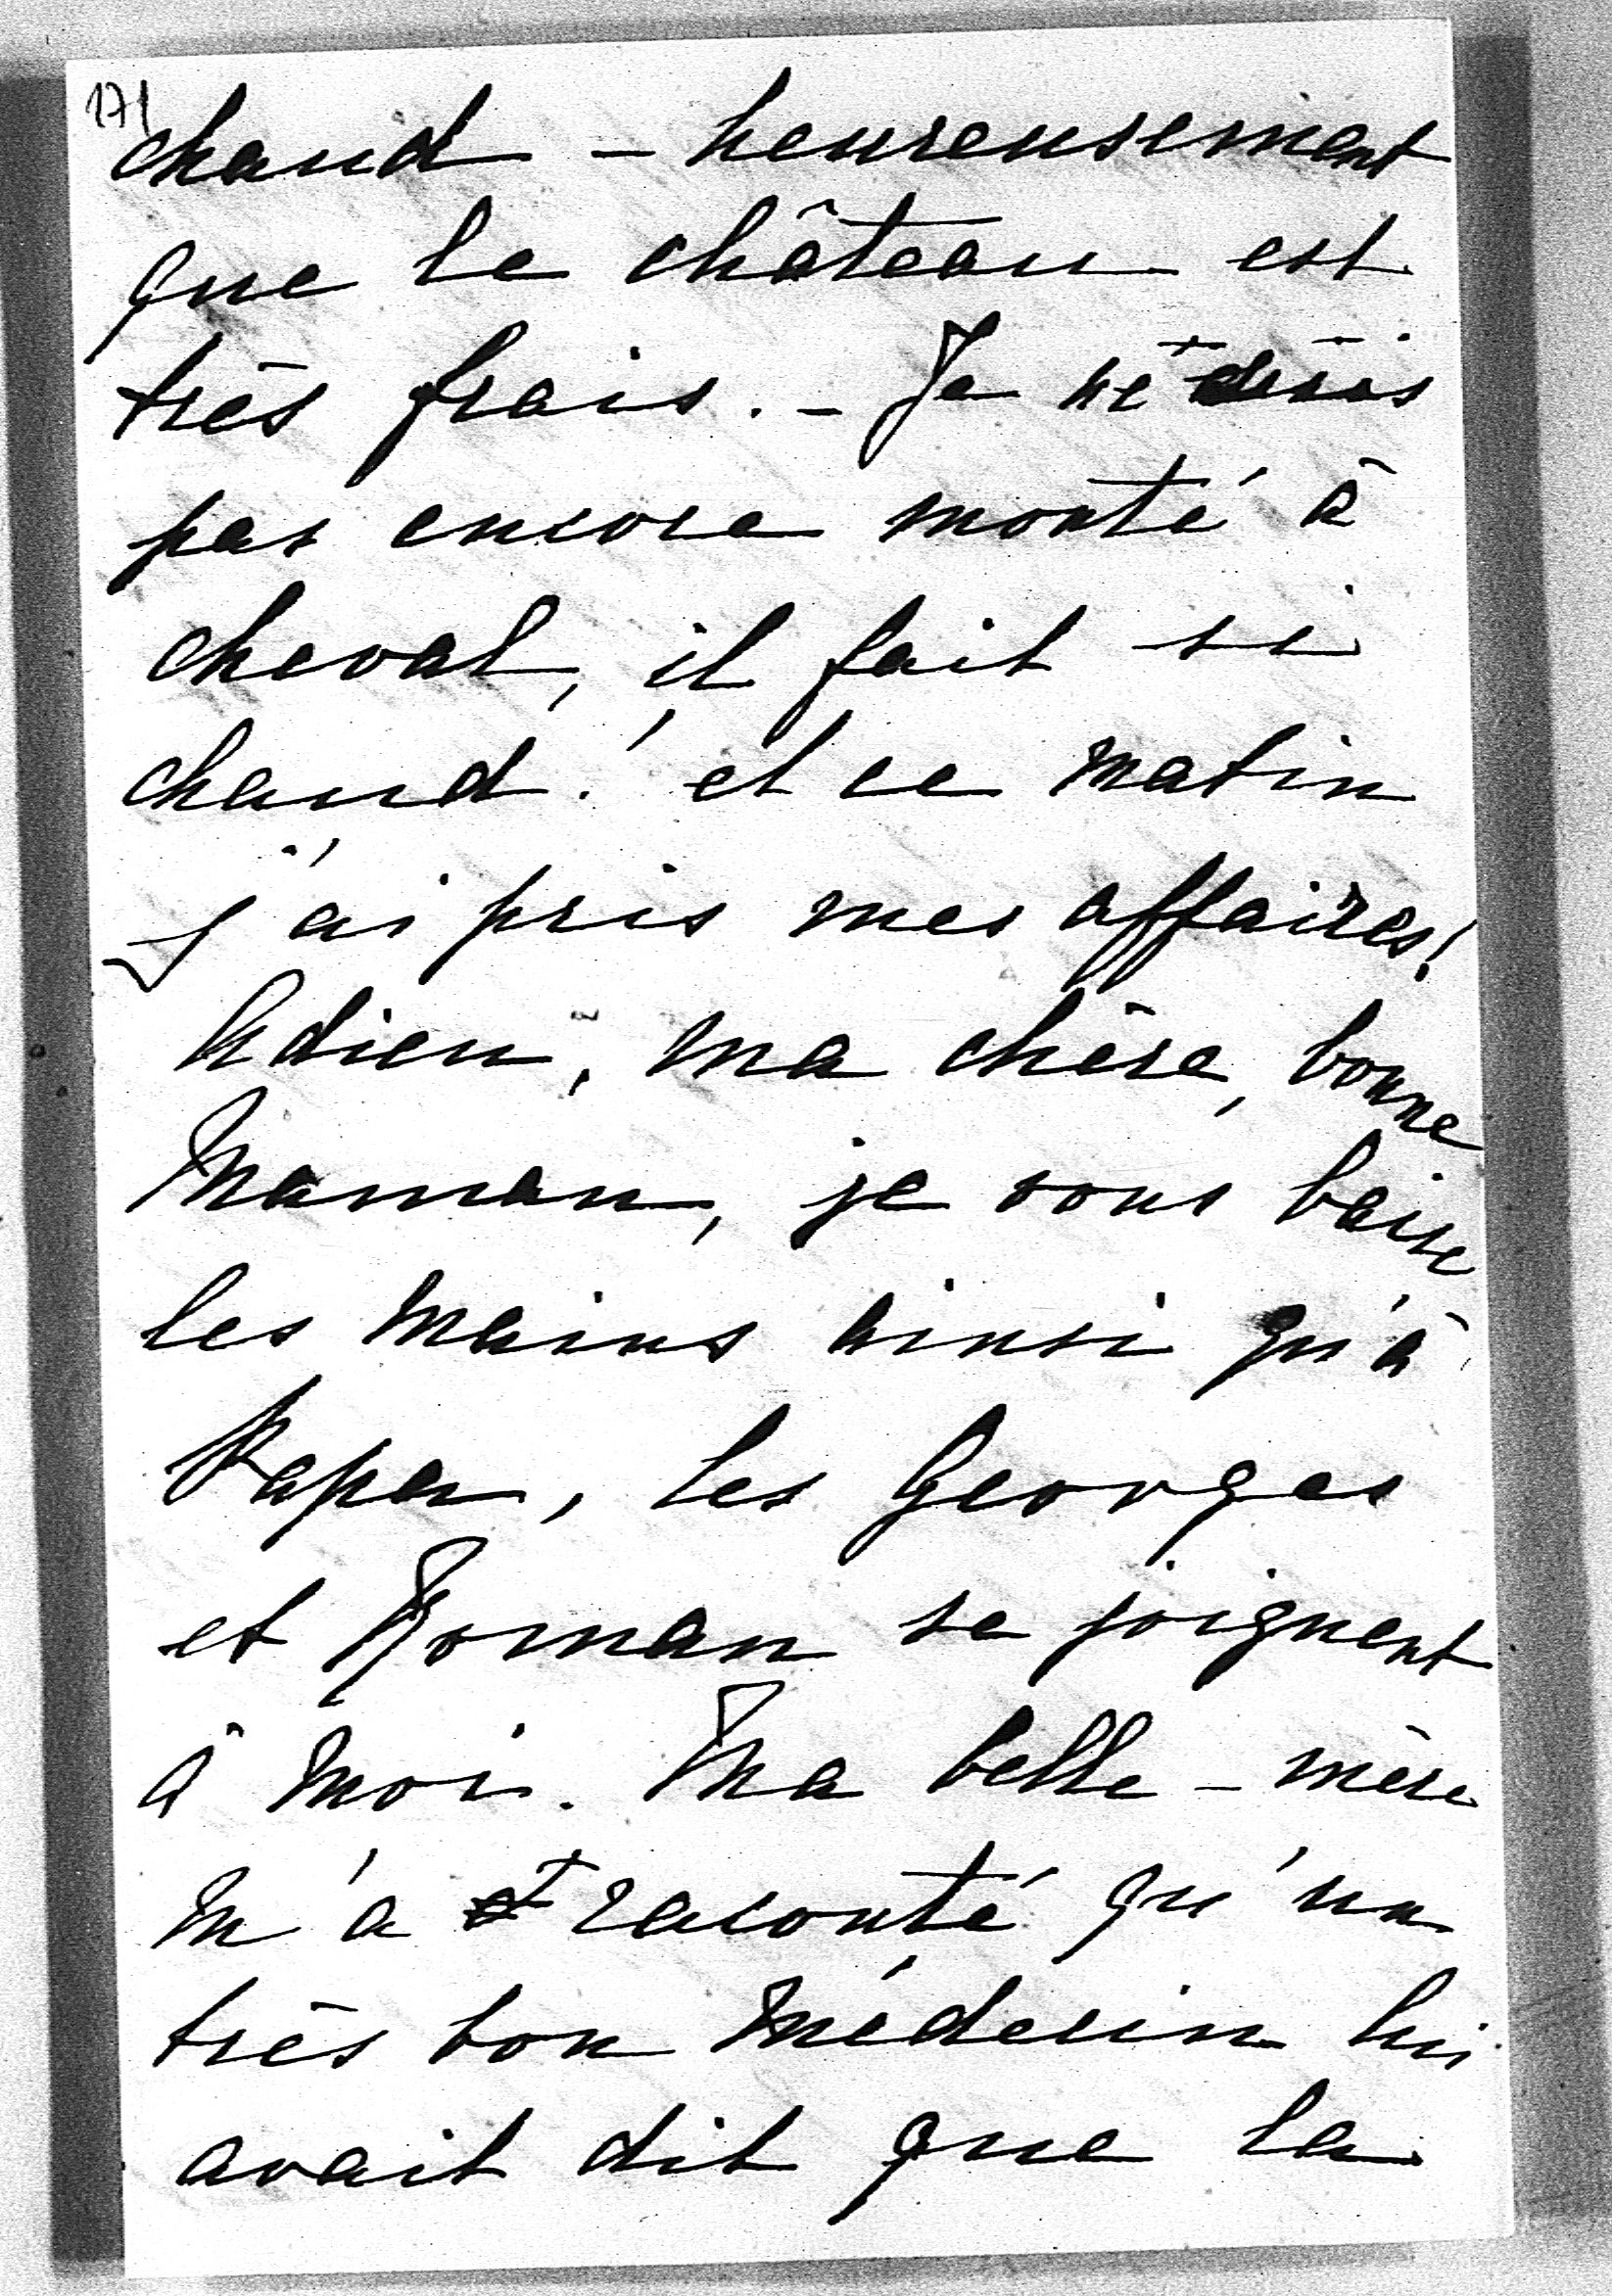 17/
chaud – heureusement
que le château est
très frais. – Je ne suis
pas encore monté à
cheval, il fait si
chaud! et ce matin
j'ai pris mes affaires!
Adieu, ma chère, bonne
Maman, je vous baise
les mains ainsi qu'à
Papa, les Georges
et Roman se joignent
à moi. Ma belle-mère
m'a raconté qu'un
très bon médecin lui
avait dit que la